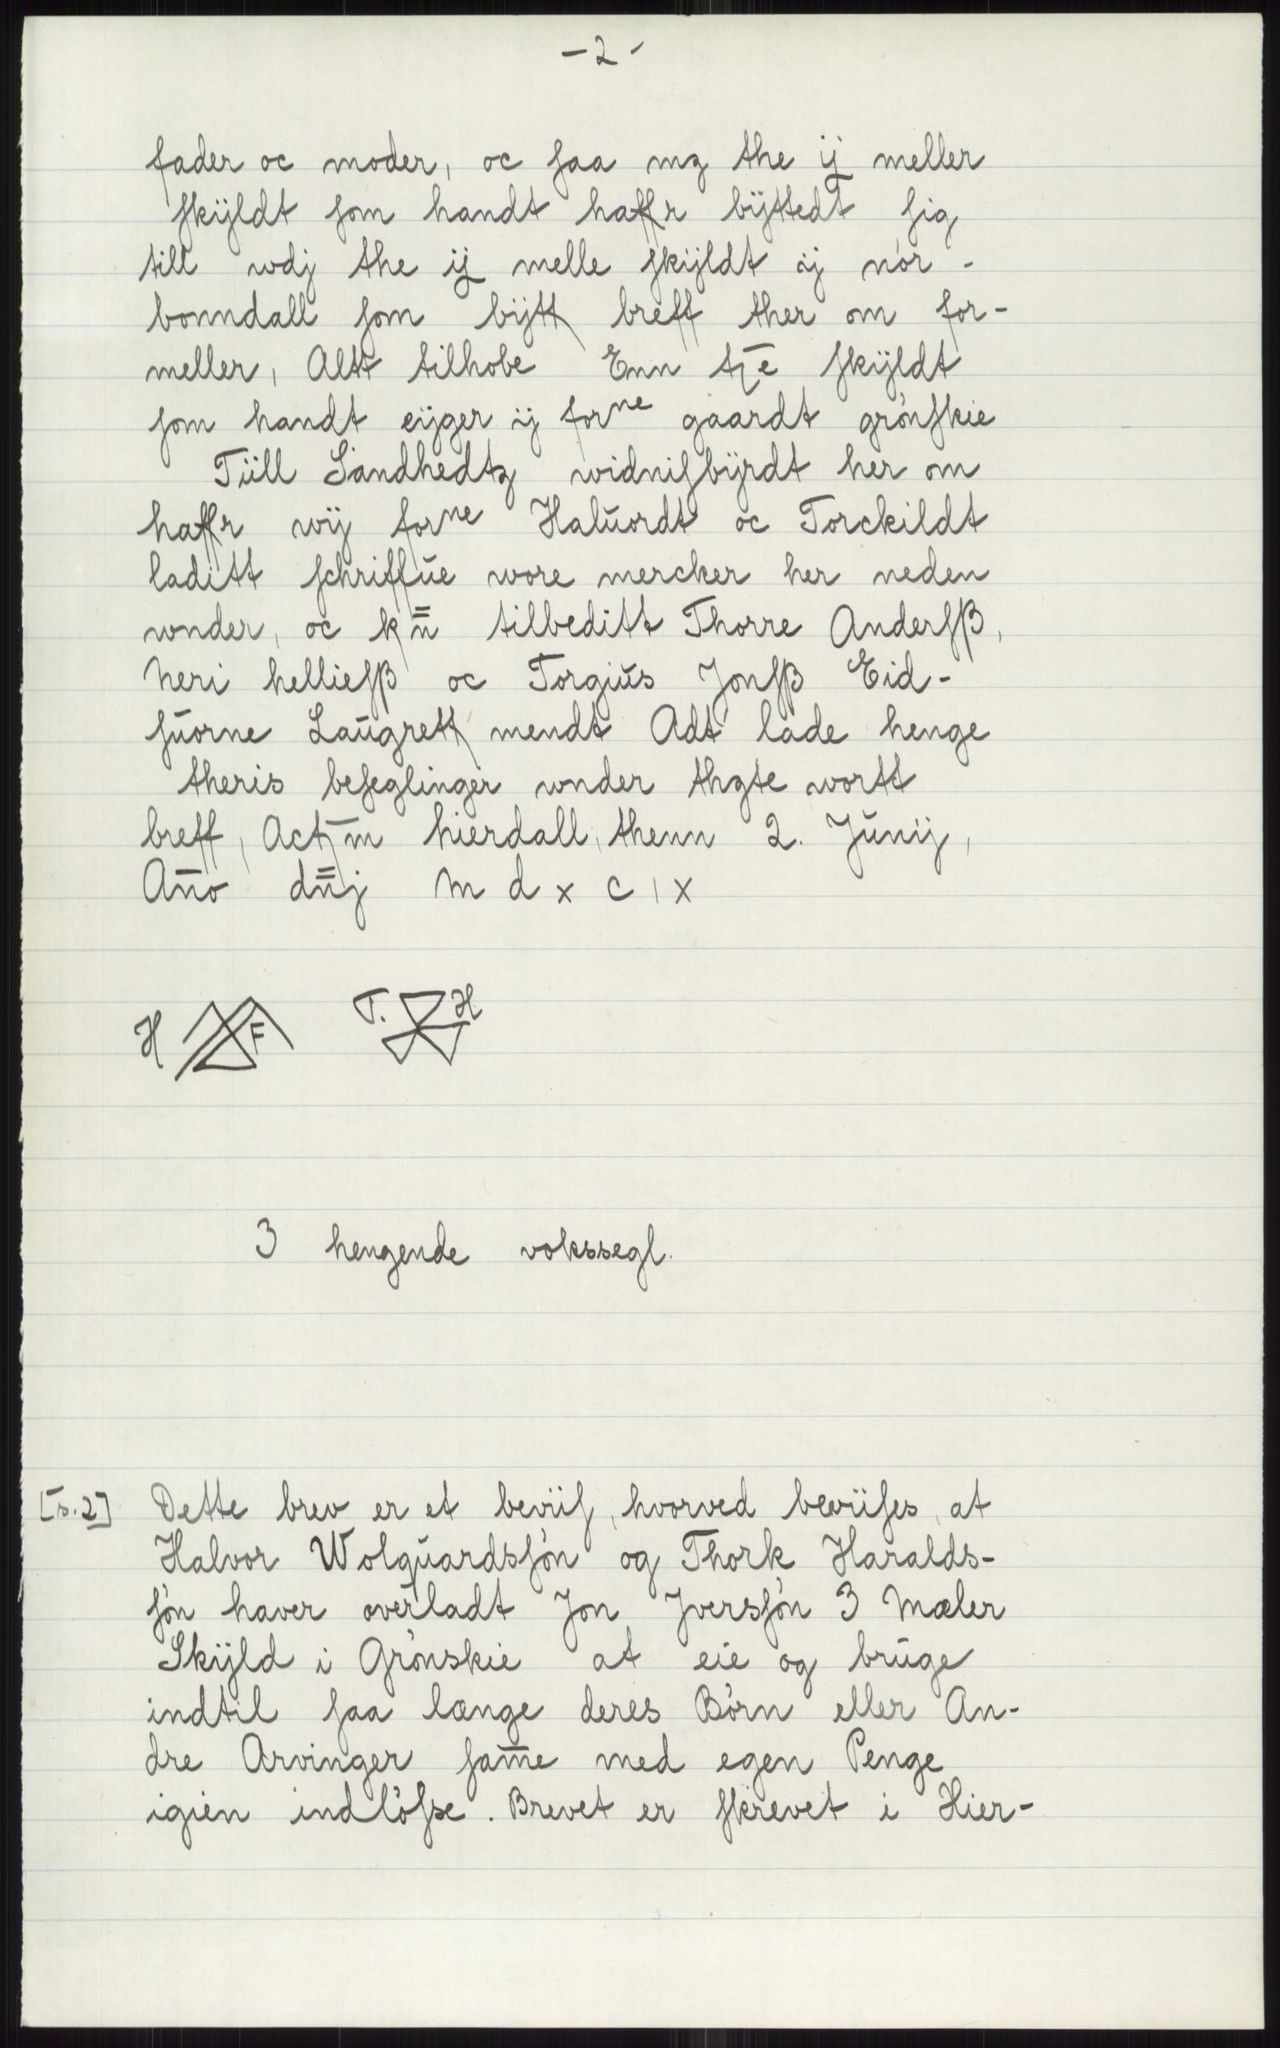 -2-
fader oc moder, oc ſaa mz the ij meller
ſkÿldt ſom handt haffr bÿttedt ſig
till wdj the ij melle ſkÿldt ij nör-
bonndall ſom bÿtt breff ther om for-
meller, Altt tilhobe Enn ſkÿldt
ſom handt eÿger ij forne gaardt grönſkie
Tüll Sandhedtz widniſbÿrdt her om
haffr wij forne Haluordt oc Torckildt
laditt ſchriffue wore mercker her neden
wnder, oc tilbeditt Thorre Anderſß,
Neri hellieſß oc Torgius Jonſß Eid-
ſuorne Laugrett mendt Adt lade henge
theris beſeglinger wnder thzte wortt
breff, Actm hierdall, thenn 2. Junij,
Ano dnj M d x c i x
H F T. H
3 hengende vokssegl.
[s.2] Dette brev er et beviiſ, hvorved beviiſes, at
Halvor Wolquardsſön og Thork Haralds-
ſön haver overladt Jon Jversſön 3 Mæler
Skÿld i Grönskie at eie og bruge
indtil ſaa længe deres Börn eller An-
dre Arvinger ſam̅e med egen Penge
igien indlöſse. Brevet er ſkrevet i Hier-